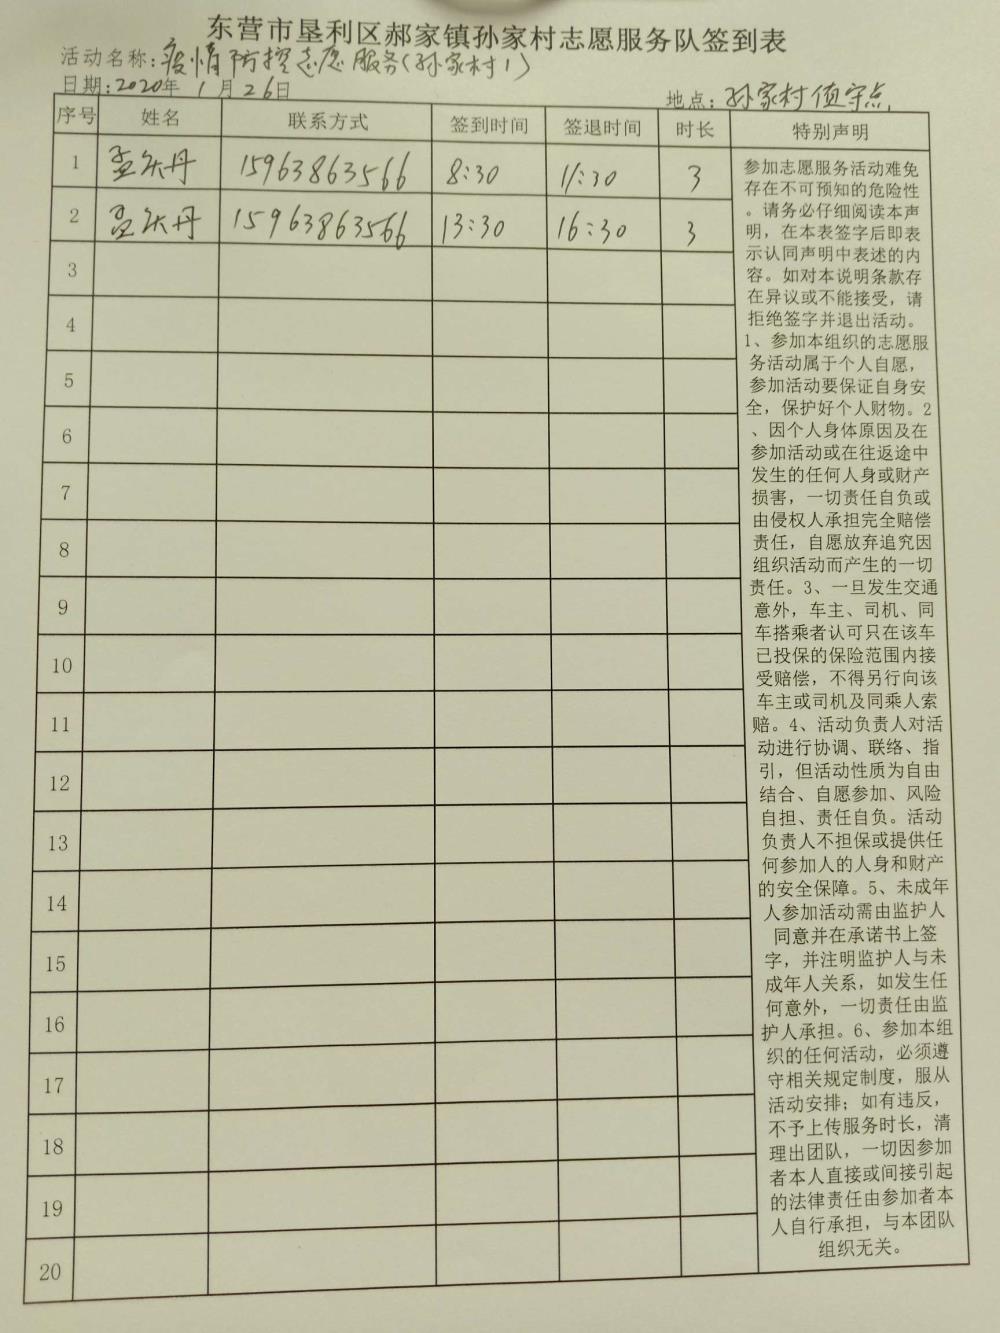 东营市垦利区郝家镇孙家村志愿服务队签到表
活动名称:疫情防控志愿服务(孙家村1)
日期:2020年 1月26日
地点:孙家村值守点
序号 姓名 联系方式 签到时间 签退时间 时长 特别声明
1 孟庆丹 15963863566 8:30 11:30 3
2 孟庆丹 15963863566 13:30 16:30 3
3
4
5
6
7
8
9
10
11
12
13
14
15
16
17
18
19
20
参加志愿服务活动难免
存在不可预知的危险性
。请务必仔细阅读本声
明，在本表签字后即表
示认同声明中表述的内
容。如对本说明条款存
在异议或不能接受，请
拒绝签字并退出活动。
1、参加本组织的志愿服
务活动属于个人自愿，
参加活动要保证自身安
全，保护好个人财物。2
、因个人身体原因及在
参加活动或在往返途中
发生的任何人身或财产
损害，一切责任自负或
由侵权人承担完全赔偿
责任，自愿放弃追究因
组织活动而产生的一切
责任。3、一旦发生交通
意外，车主、司机、同
车搭乘者认可只在该车
已投保的保险范围内接
受赔偿，不得另行向该
车主或司机及同乘人索
赔。4、活动负责人对活
动进行协调、联络、指
引，但活动性质为自由
结合、自愿参加、风险
自担、责任自负。活动
负责人不担保或提供任
何参加人的人身和财产
的安全保障。5、未成年
人参加活动需由监护人
同意并在承诺书上签
字，并注明监护人与未
成年人关系，如发生任
何意外，一切责任由监
护人承担。6、参加本组
织的任何活动，必须遵
守相关规定制度，服从
活动安排；如有违反，
不予上传服务时长，清
理出团队，一切因参加
者本人直接或间接引起
的法律责任由参加者本
人自行承担，与本团队
组织无关。